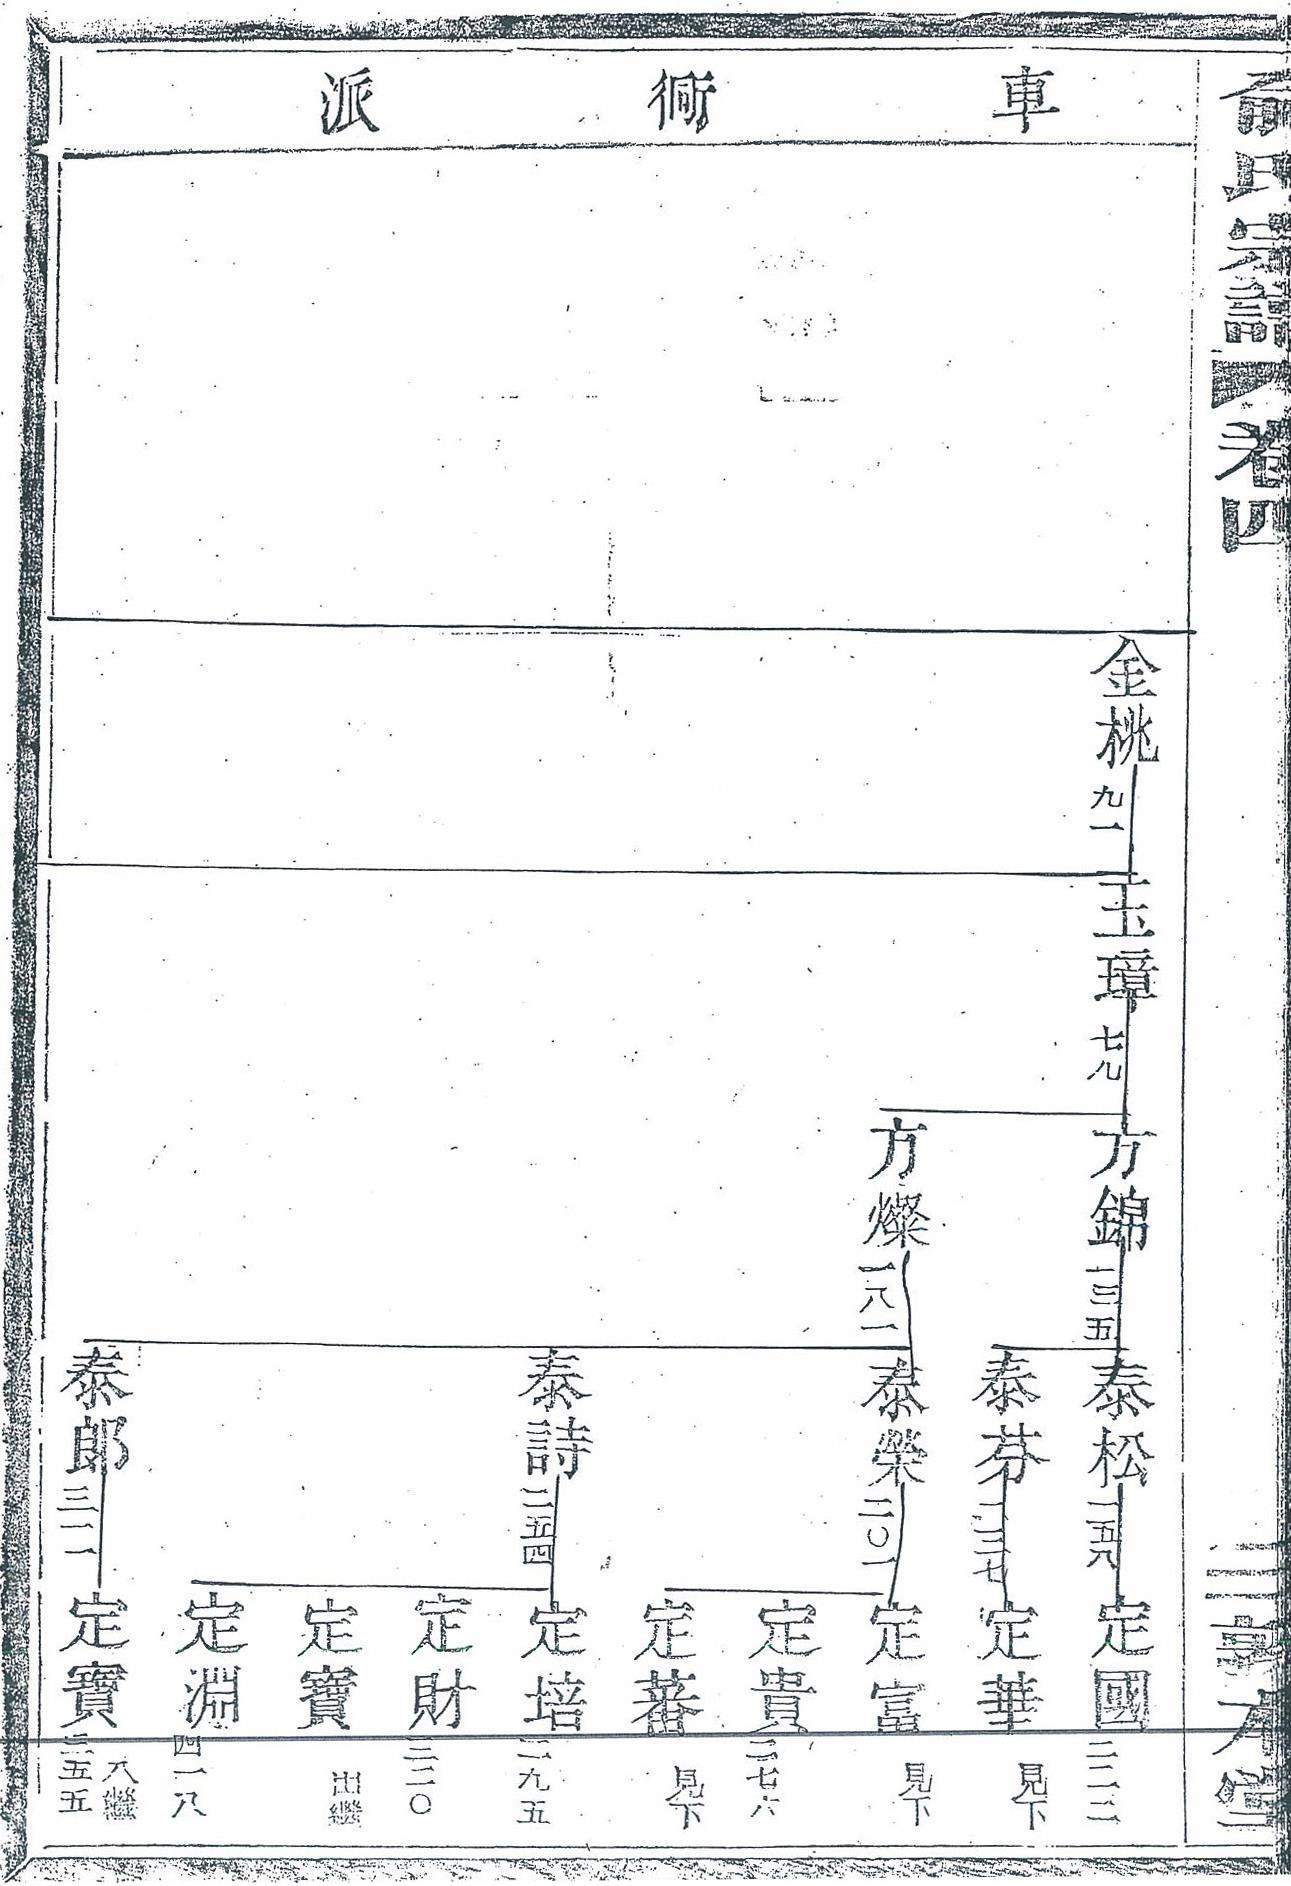 俞氏宗譜
卷四
三 敦本堂
車衕派
金桃 九一
玉璋 七九
方錦 一三五
方燦 一八一
泰松 一五八
泰芬 一三七
泰榮 二〇一
泰詩 二五四
泰郎 三一一
定國 二二二
定華 見下
定富 見下
定貴 三七六
定蕃 見下
定培 二九五
定財 三二〇
定寶 出繼
定淵 四一八
定寶 入繼 三五五